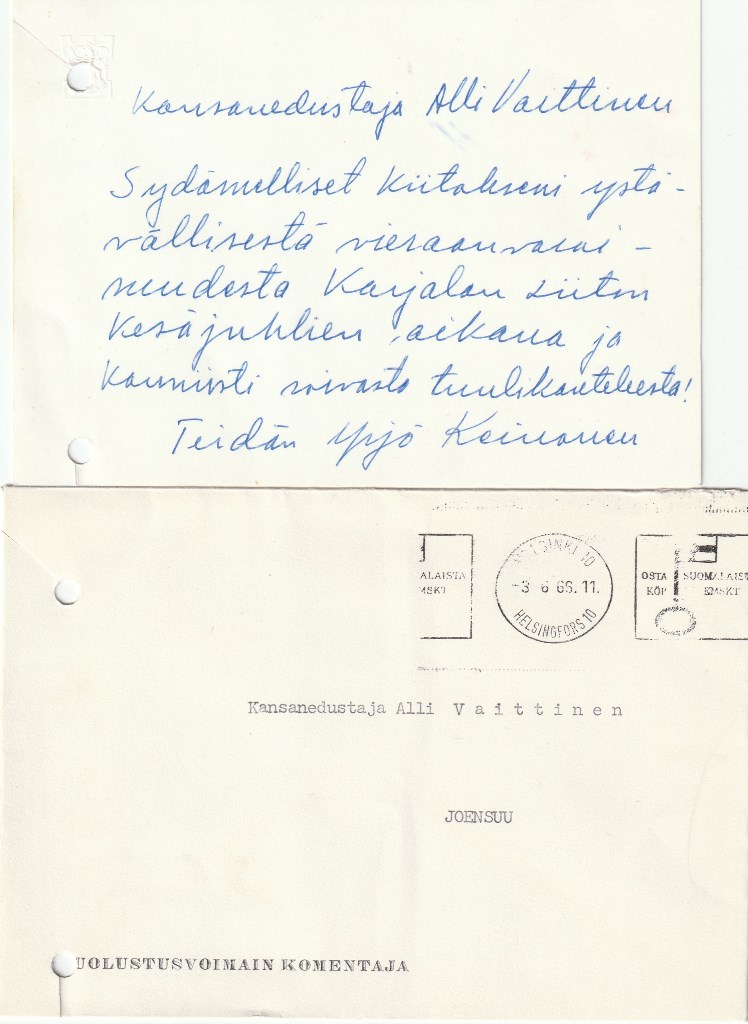 Kansanedustaja Alli Vaittinen
Sydämelliset kiitokseni ystä-
vällisestä vieraanvarai-
suudesta Karjalan Liiton
Kesäjuhlien aikana ja
kauniisti soivasta tuulikanteleesta!
Teidän Yrjö Keinonen
HELSINKI 10
-3 6 66. 11.
HELSINGFORS 10
ALAISTA
MSKT
OSTA SUOMALAIST
KÖP EMSKT
Kansanedustaja Alli Vaittinen
JOENSUU
UOLUSTUSVOIMAIN KOMENTAJA